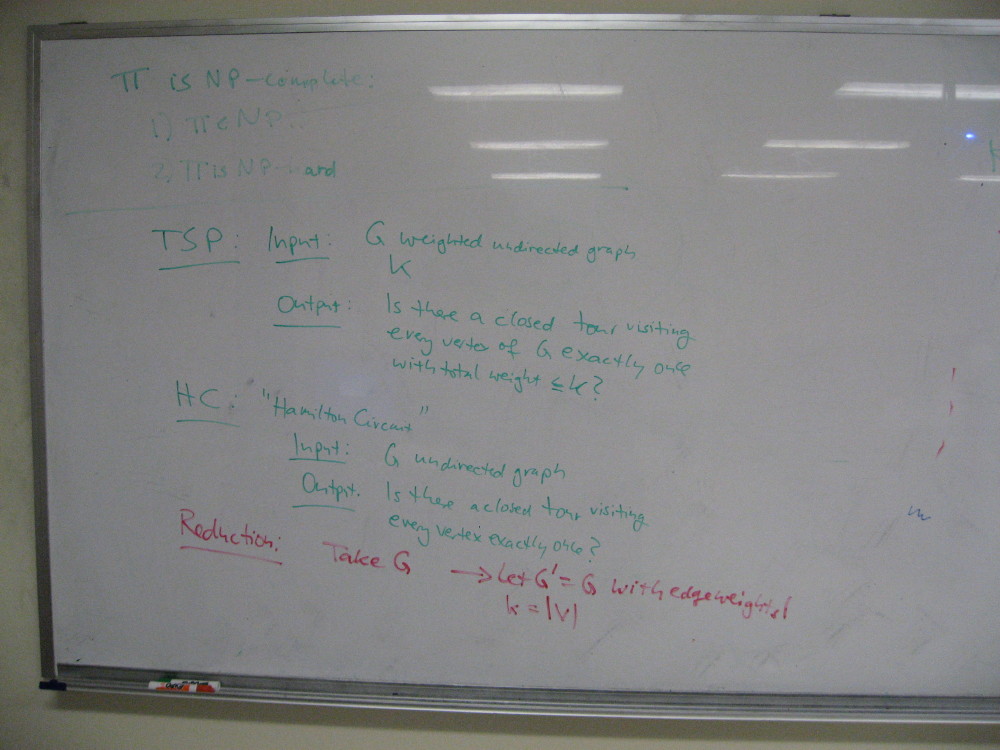 π is NP-complete:
1) π ∈ NP
2) π is NP and
TSP: Input: G weighted undirected graph
k
Output: Is there a closed tour visiting
every vertex of G exactly once
with total weight ≤ k?
HC: "Hamilton Circuit"
Input: G undirected graph
Output: Is there a closed tour visiting
every vertex exactly once?
Reduction: Take G → Let G' = G with edgeweights 1
k = |V|